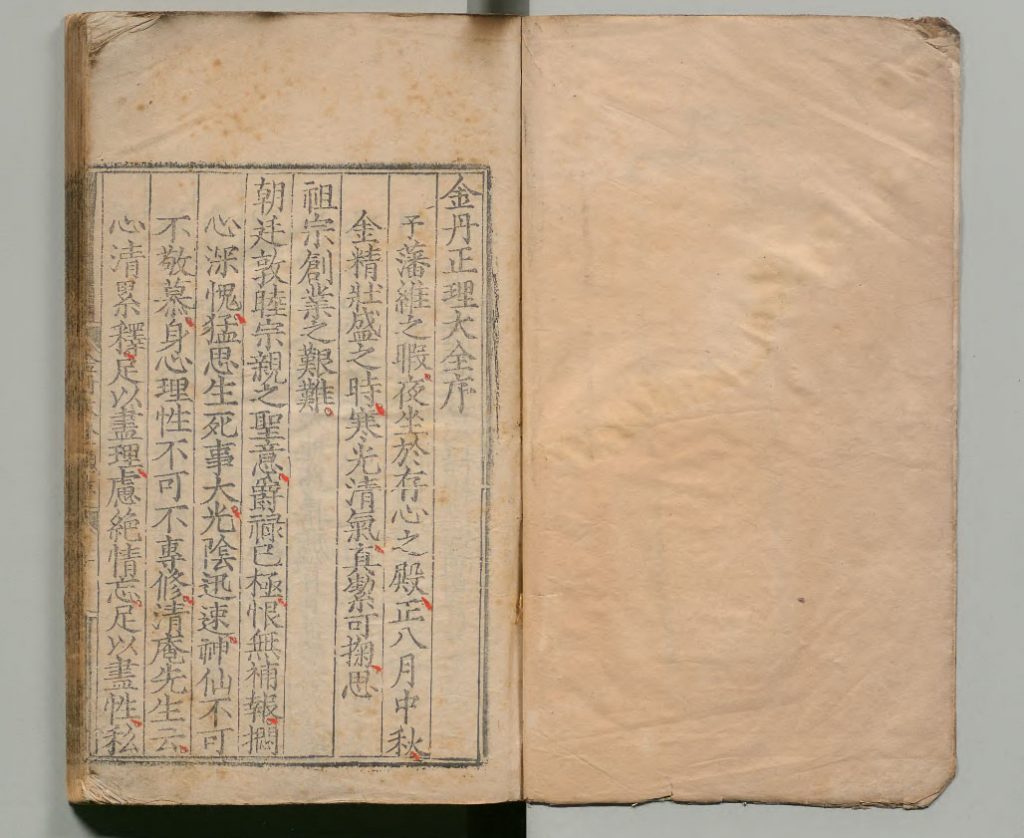 金丹正理大全序
予藩維之暇夜坐於存心之殿正八月中秋
金精壯盛之時寒光清氣真潔可掬思
祖宗創業之艱難
朝廷敦睦宗親之聖意爵祿已極恨無補報撊
心深愧猛思生死事大光陰迅速神仙不可
不敬慕身心理性不可不專修清庵先生云
心清累釋足以盡理慮絕情忘足以盡性私